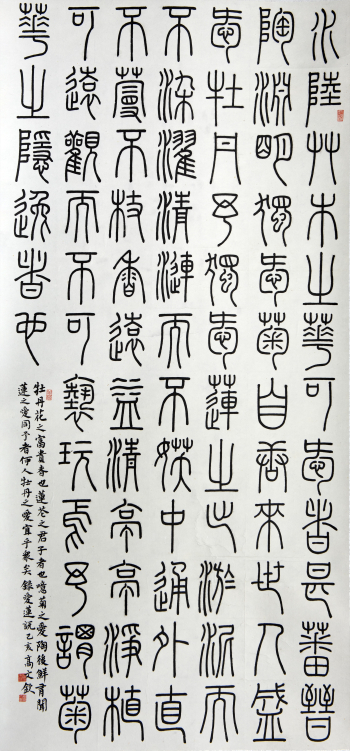 水陸艸木之華可愛者甚蕃晉
陶淵明獨愛菊自唐來世人盛
愛牡丹予獨愛蓮之出淤泥而
不染濯清漣而不妖中通外直
不蔓不枝香遠益清亭亭淨植
可遠觀而不可褻玩焉予謂菊
華之隱逸者也
牡丹花之富貴者也蓮花之君子者也噫菊之愛陶後鮮有聞
蓮之愛同予者何人牡丹之愛宜乎衆矣錄愛蓮說己亥高文欽